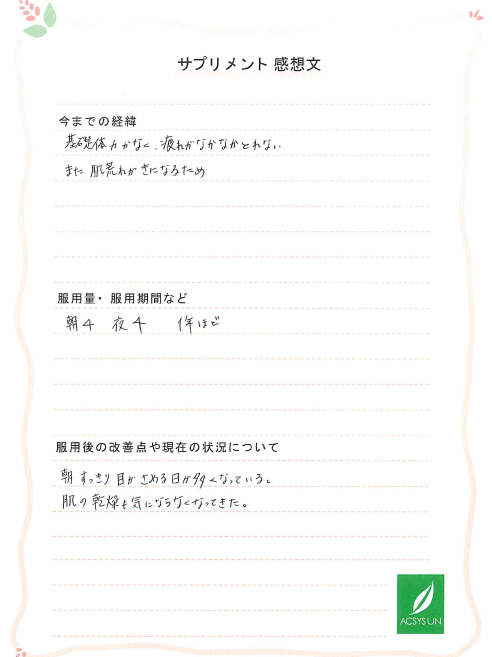 サプリメント 感想文
今までの経緯
基礎体力がなく、疲れがなかなかとれない
また 肌荒れがきになるため
服用量・服用期間など
朝4 夜4 1年ほど
服用後の改善点や現在の状況について
朝 すっきり目がさめる日が多くなっている。
肌の乾燥も気にならなくなってきた。
ACSYSUN